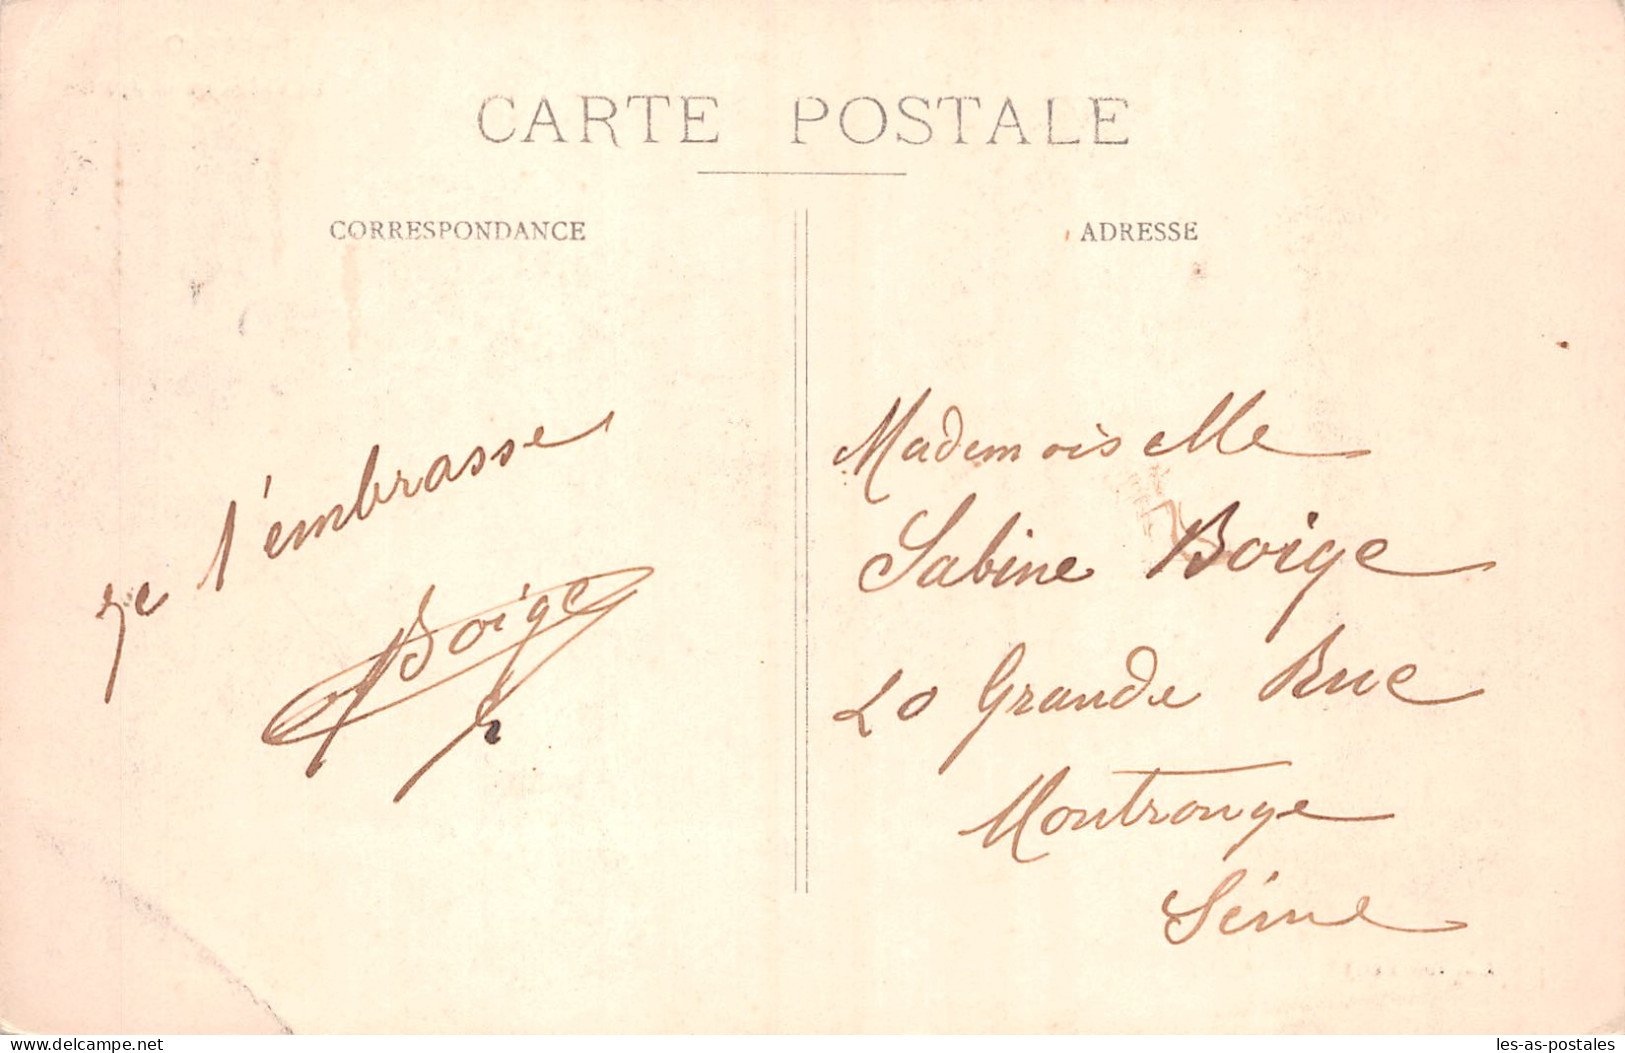 CARTE POSTALE
CORRESPONDANCE
ADRESSE
je t'embrasse
Boige
Mademoiselle
Sabine Boige
20 Grande Rue
Montrouge
Seine
delcampe.net
les-as-postales